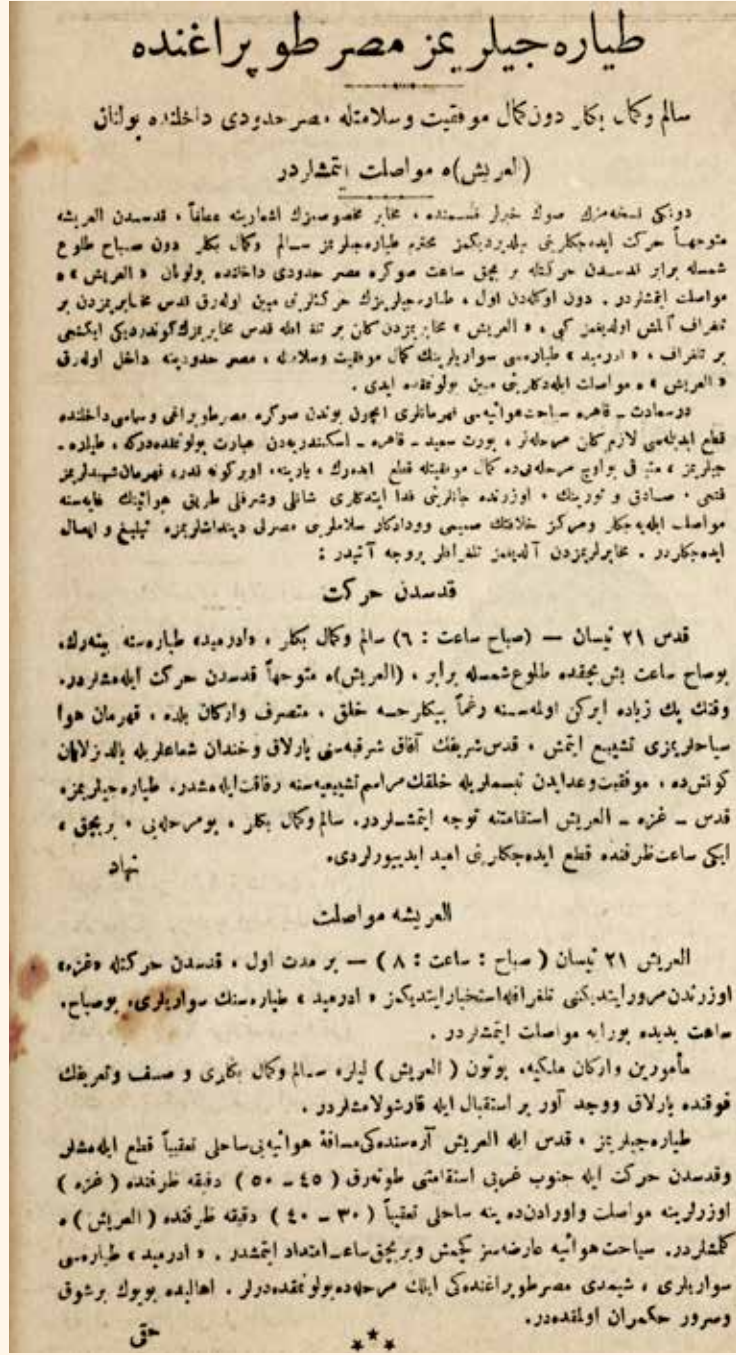 طیاره‌جیلریمز مصر طوپراغنده
سالم وکمال بکلر دون کمال موفقیت وسلامتله مصر حدودی داخلنده بولنان
(العریش)ه مواصلت ایتمشلردر
دونکی نسخه‌مزك صوك خبرلر قسمنده ، مخابر مخصوصمزك اشعارینه عطفاً ، قدسدن العریشه
متوجهاً حرکت ایده‌جکلرینی بیلدیردیکمز محترم طیاره‌جیلرمز سالم وکمال بکلر دون صباح طلوع
شمسله برابر قدسدن حرکتله بر بچق ساعت صوکره مصر حدودی داخلنده بولونان « العریش » ه
مواصلت ایتمشلردر . دون اوکله‌دن اول ، طیاره‌جیلریمزك حرکتلرینی مبین اوله‌رق قدس مخابریمزدن بر
تلغراف آلمش اولدیغمز کبی ، « العریش » مخابریمزدن کلن بر تلغرافله قدس مخابریمزك کوندردیکی ایکنجی
بر تلغراف ، « ادرمید » طیاره‌سی سواریلرینك کمال موفقیت وسلامتله ، مصر حدودینه داخل اوله‌رق
« العریش » ه مواصلت ایله‌دکلرینی مبین بولونمقده ایدی .
درسعادت ـ قاهره سیاحت هوائیه‌سی قهرمانلری ایچون بوندن صوکره مصر طوپراغی وسماسی داخلنده
قطع ایدیله‌سی لازم کلن مرحله‌لر ، پورت سعید ـ قاهره ـ اسکندریه‌دن عبارت بولونمقده‌درکه ، طیاره‌ـ
جیلریمز ، متباقی بو اوچ مرحله‌یی ده کمال موفقیتله قطع ایده‌رك ، یارینه ، اوبر کونه قدر، قهرمان شهیدلریمز
فتحی ، صادق و نورینك ، اوزرنده جانلرینی فدا ایتدکلری شانلی وشرفلی طریق هوائینك غایه‌سنه
مواصلت ایله‌یه‌جکلر ومرکز خلافتك صمیمی وودادکار سلاملرینی مصرلی دینداشلریمزه تبلیغ و ایصال
ایده‌جکلردر . مخابرلریمزدن آلدیغمز تلغرافلر بروجه آتیدر :
قدسدن حرکت
قدس ۲۱ نیسان — (صباح ساعت : ٦) سالم وکمال بکلر ، «ادرمید» طیاره‌سنه بینه‌رك،
بوصباح ساعت بش بچقده طلوع شمسله برابر ، (العریش)ه متوجهاً قدسدن حرکت ایله‌مشلردر.
وقتك پك زیاده ایرکن اولمه‌سنه رغماً بیکلرجه خلق ، متصرف وارکان بلده ، قهرمان هوا
سیاحلریمزی تشییع ایتمش ، قدس شریفك آفاق شرقیه‌سنی پارلاق وخندان شعاعلریله یالدزلایان
کونش ده ، موفقیت وعد ایدن تبسملریله خلقك مراسم تشییعیه‌سنه رفاقت ایله‌مشدر. طیاره‌جیلریمز،
قدس ـ غزه ـ العریش استقامتنه توجه ایتمشلردر. سالم وکمال بکلر ، بومرحله‌یی ، بربچق ،
ایکی ساعت ظرفنده قطع ایده‌جکلرینی امید ایدییورلردی.
نهاد
العریشه مواصلت
العریش ۲۱ نیسان ( صباح : ساعت : ۸ ) — بر مدت اول ، قدسدن حرکتله «غزه»
اوزرندن مرور ایتدیکنی تلغرافله استخبار ایتدیکمز « ادرمید » طیاره‌سنك سواریلری، بوصباح،
ساعت یدیده بورایه مواصلت ایتمشلردر .
مأمورین وارکان ملکیه، بوتون ( العریش ) لیلره سالم وکمال بکلری و صف وتعریفك
فوقنده پارلاق ووجد آور بر استقبال ایله قارشولامشلردر .
طیاره‌جیلریمز ، قدس ایله العریش آره‌سنده‌کی مسافهٔ هوائیه‌یی ساحلی تعقیباً قطع ایله‌مشلر
وقدسدن حرکت ایله جنوب غربی استقامتی طوته‌رق ( ٤٥ ـ ٥٠ ) دقیقه ظرفنده ( غزه )
اوزرلرینه مواصلت واورادن ده ینه ساحلی تعقیباً ( ۳۰ ـ ٤۰ ) دقیقه ظرفنده (العریش) ه
کلمشلردر. سیاحت هوائیه عارضه‌سز کچمش وبربچق ساعت امتداد ایتمشدر . « ادرمید » طیاره‌سی
سواریلری ، شیمدی مصر طوپراغنده‌کی ایلك مرحله‌ده بولونمقده‌درلر . اهالیده بویوك برشوق
وسرور حکمران اولمقده‌در.
حقی
***